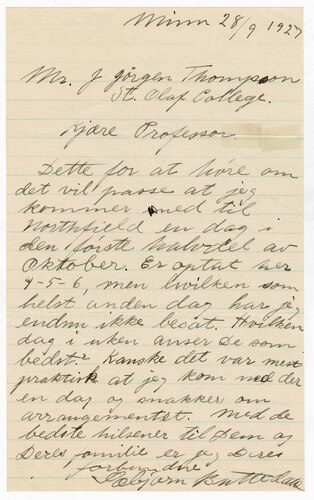 Minn 28/9 1927
Mr. J Jörgen Thompson
St. Olaf College.
Kjære Professor.
Dette for at höre om
det vil passe at jeg
kommer ned til
Northfield en dag i
den förste halvdel av
Oktober. Er optat her
4-5-6, men hvilken som
helst anden dag har jeg
endnu ikke besat. Hvilken
dag i uken anser De som
bedst? Kanske det var mest
praktisk at jeg kom ned der
en dag og snakker om
arrangementet. Med de
bedste hilsener til Dem og
Deres familie er jeg Deres
forbindtne